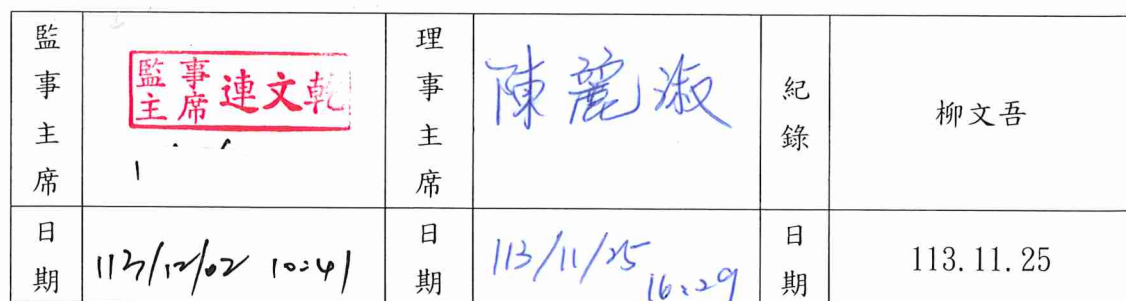 監事主席
監事主席 連文乾
理事主席
陳麗淑
紀錄
柳文吾
日期
113/12/02 10:41
日期
113/11/25 16:29
日期
113.11.25